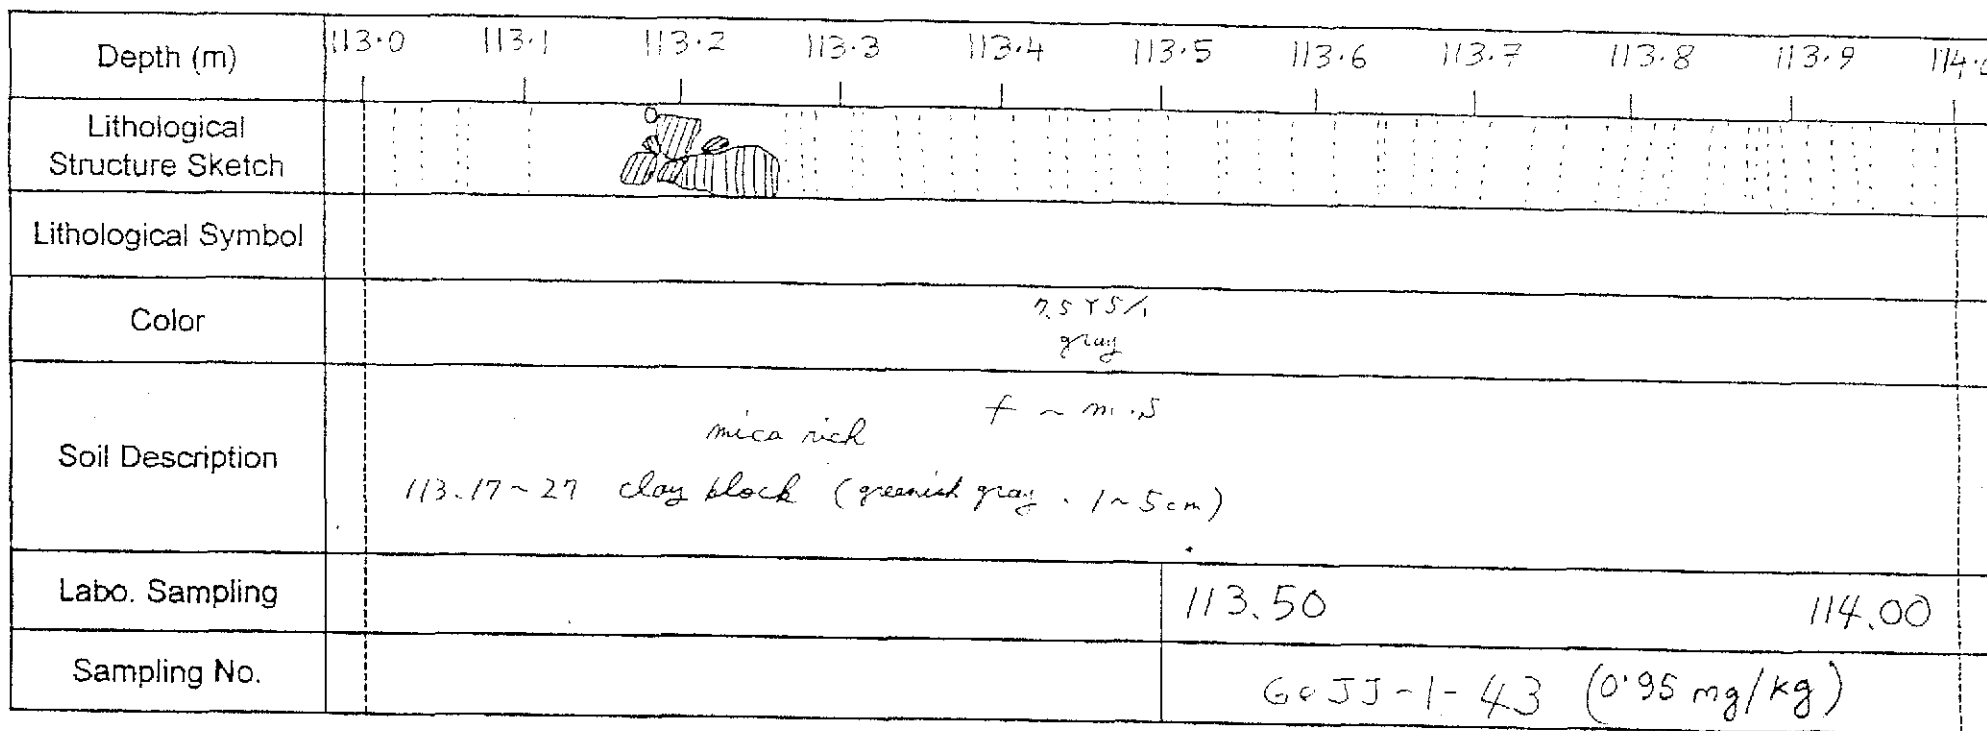 Depth (m) 113.0 113.1 113.2 113.3 113.4 113.5 113.6 113.7 113.8 113.9 114.0
Lithological
Structure Sketch
Lithological Symbol
Color
7.5Y5/1
gray
Soil Description
f ~ m.s
mica rich
113.17~27 clay block (greenish gray . 1~5cm)
Labo. Sampling 113.50 114.00
Sampling No. GoJJ-1-43 (0.95 mg/kg)